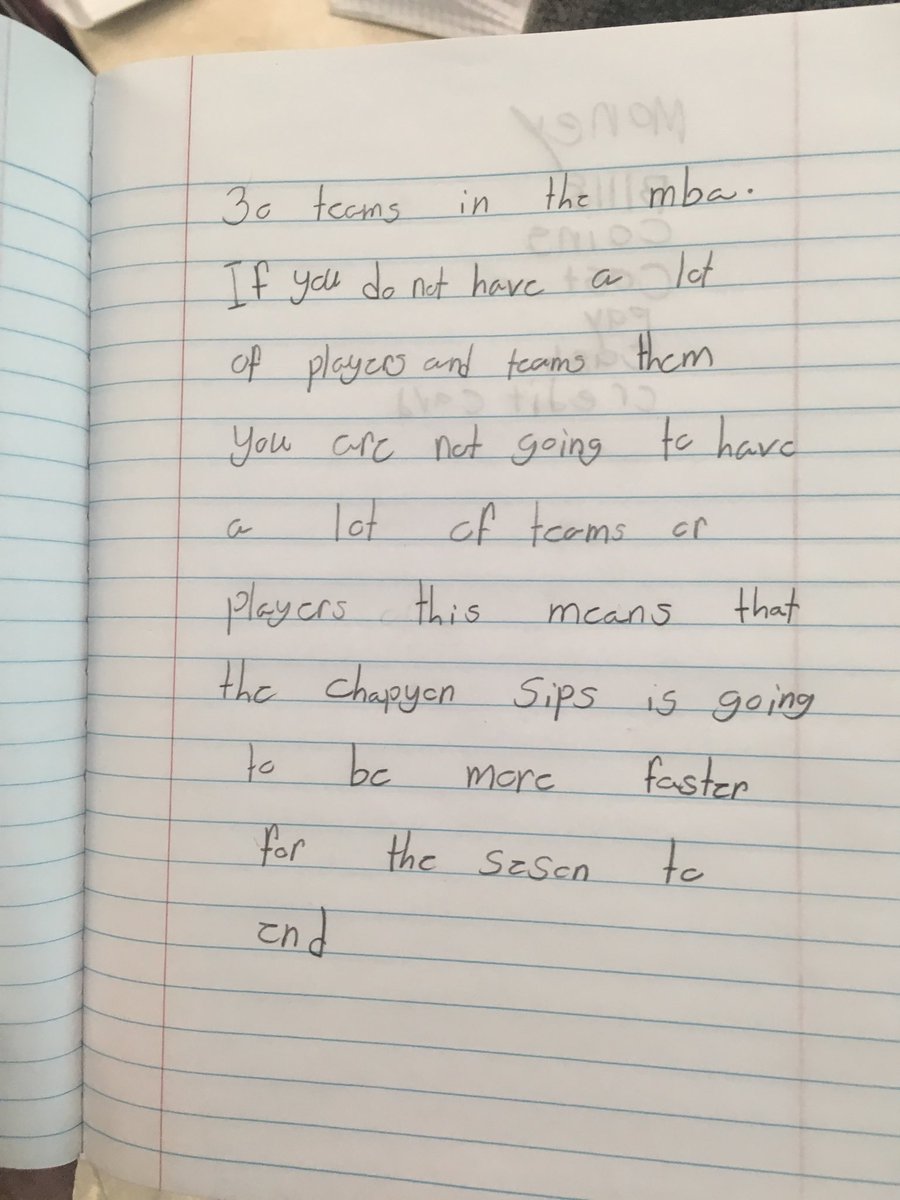 30 teams in the mba.
If you do not have a lot
of players and teams them
you are not going to have
a lot of teams or
players this means that
the chapyon sips is going
to be more faster
for the seson to
end
Money
Bills
Coins
Cost
pay
credit card